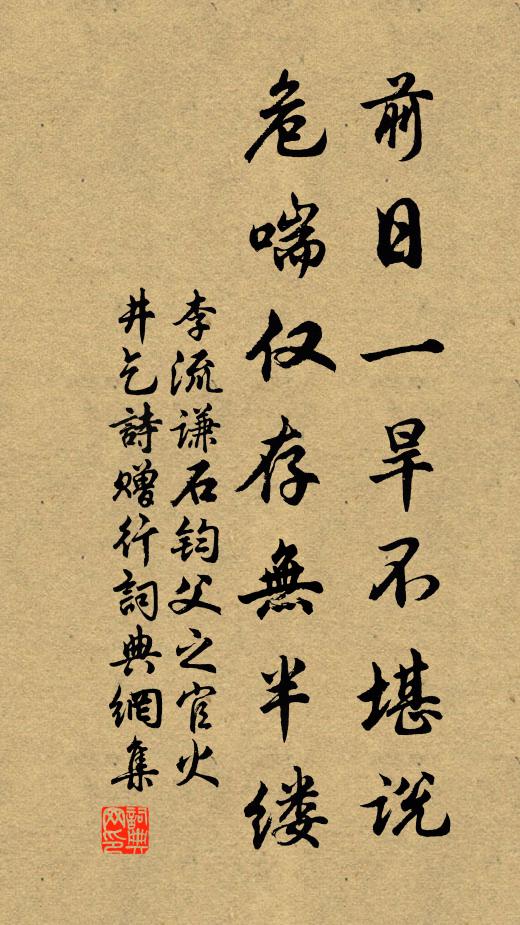 前日一旱不堪说
危喘仅存無半缕
李流谦石钧父之官火
井乞詩赠行詞典網集
詞典
网印